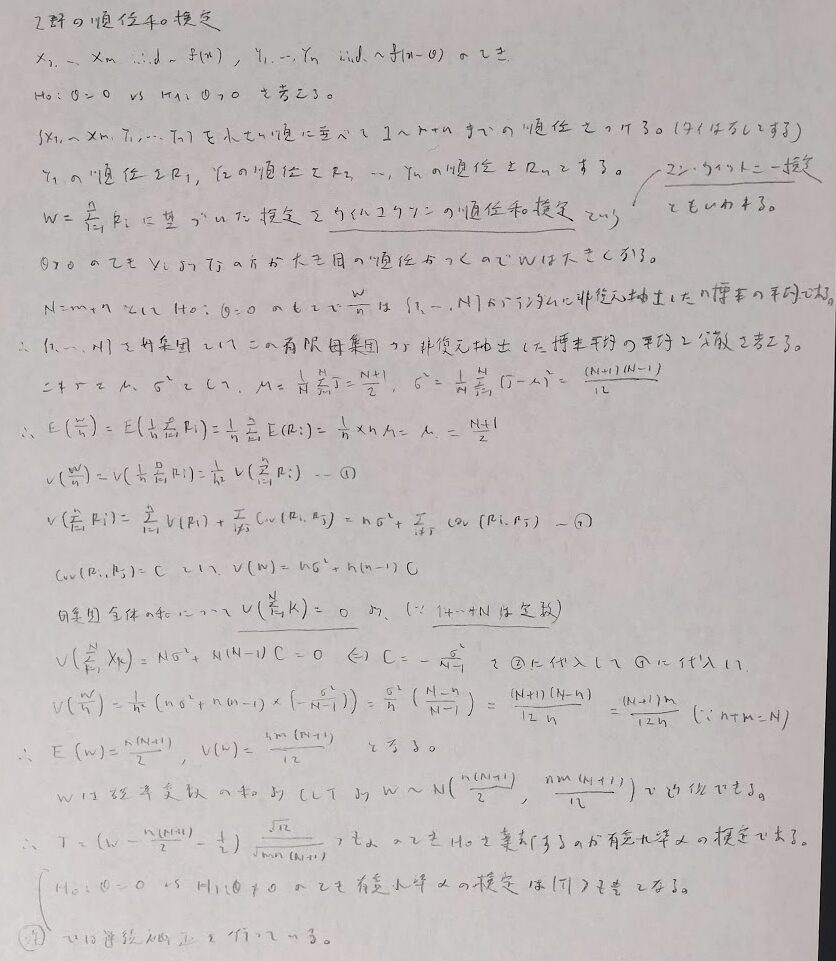 2群の順位和検定
X1, ~ Xm i.i.d ~ f(x), Y1, ..., Yn i.i.d. ~ f(x-θ) のとき
H0: θ=0 vs H1: θ>0 を考える。
{X1, ~ Xm, Y1, ... Yn} を小さい順に並べて 1~m+n までの順位をつける。(タイはなしとする)
Y1の順位をR1, Y2の順位をR2 ..., Ynの順位をRnとする。
マン・ウィットニー検定
ともいわれる。
W = Σ_{i=1}^{n} Ri に基づいた検定をウィルコクソンの順位和検定という
θ>0 のとき Xi より Yj の方が大き目の順位がつくのでWは大きくなる。
N=m+n として H0: θ=0 のもとで W/n は {1, ..., N} からランダムに非復元抽出したn標本の平均である。
∴ {1, ..., N} を母集団としてこの有限母集団から非復元抽出した標本平均の平均と分散を考える。
これらを μ, σ² として, μ = 1/N Σ_{j=1}^{N} j = (N+1)/2, σ² = 1/N Σ_{j=1}^{N} (j-μ)² = (N+1)(N-1)/12
∴ E(W/n) = E(1/n Σ_{i=1}^{n} Ri) = 1/n Σ_{i=1}^{n} E(Ri) = 1/n × nμ = μ = (N+1)/2
V(W/n) = V(1/n Σ_{i=1}^{n} Ri) = 1/n² V(Σ_{i=1}^{n} Ri) ... ①
V(Σ_{i=1}^{n} Ri) = Σ_{i=1}^{n} V(Ri) + Σ_{i≠j} Cov(Ri, Rj) = nσ² + Σ_{i≠j} Cov(Ri, Rj) ... ②
Cov(Ri, Rj) = C として, V(W) = nσ² + n(n-1)C
母集団全体の和について V(Σ_{k=1}^{N} K) = 0 より, (∵ 1+...+N は定数)
V(Σ_{k=1}^{N} Xk) = Nσ² + N(N-1)C = 0 ⇔ C = - σ²/(N-1) を②に代入して①に代入し,
V(W/n) = 1/n² (nσ² + n(n-1) × (-σ²/(N-1))) = σ²/n ((N-n)/(N-1)) = (N+1)(N-n)/12n = (N+1)m/12n (∵ n+m=N)
∴ E(W) = n(N+1)/2, V(W) = nm(N+1)/12 となる。
Wは確率変数の和より CLT より W ~ N(n(N+1)/2, nm(N+1)/12) で近似できる。
∴ T = (W - n(N+1)/2 - 1/2) √12/√(mn(N+1)) > zα のとき H0 を棄却するのが有意水準αの検定である。
H0: θ=0 vs H1: θ≠0 のとき有意水準αの検定は |T| > となる。
では連続補正を行っている。